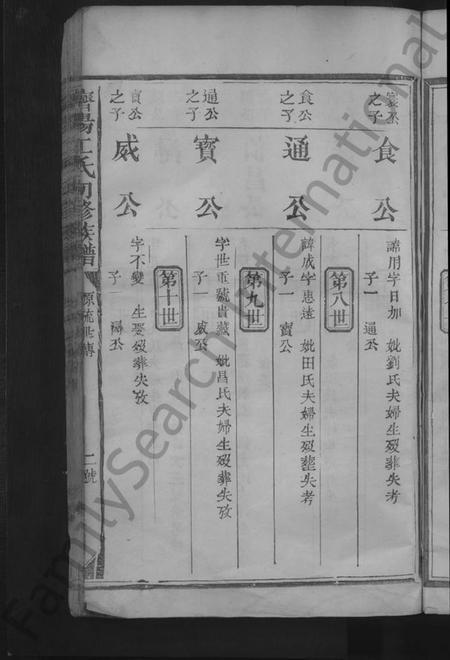 之子
食公
諱用字日加 妣劉氏夫婦生歿葬失考
子一 通公
第八世
食公
之子
通公
諱成字惠遠 妣田氏夫婦生歿葬失考
子一 寶公
第九世
通公
之子
寶公
字世重號貴藏 妣昌氏夫婦生歿葬失攷
子一 威公
第十世
寶公
之子
威公
字不變 生娶歿葬失攷
子一 公
陽江氏初修族譜
源流世傳
二號
FamilySearch International